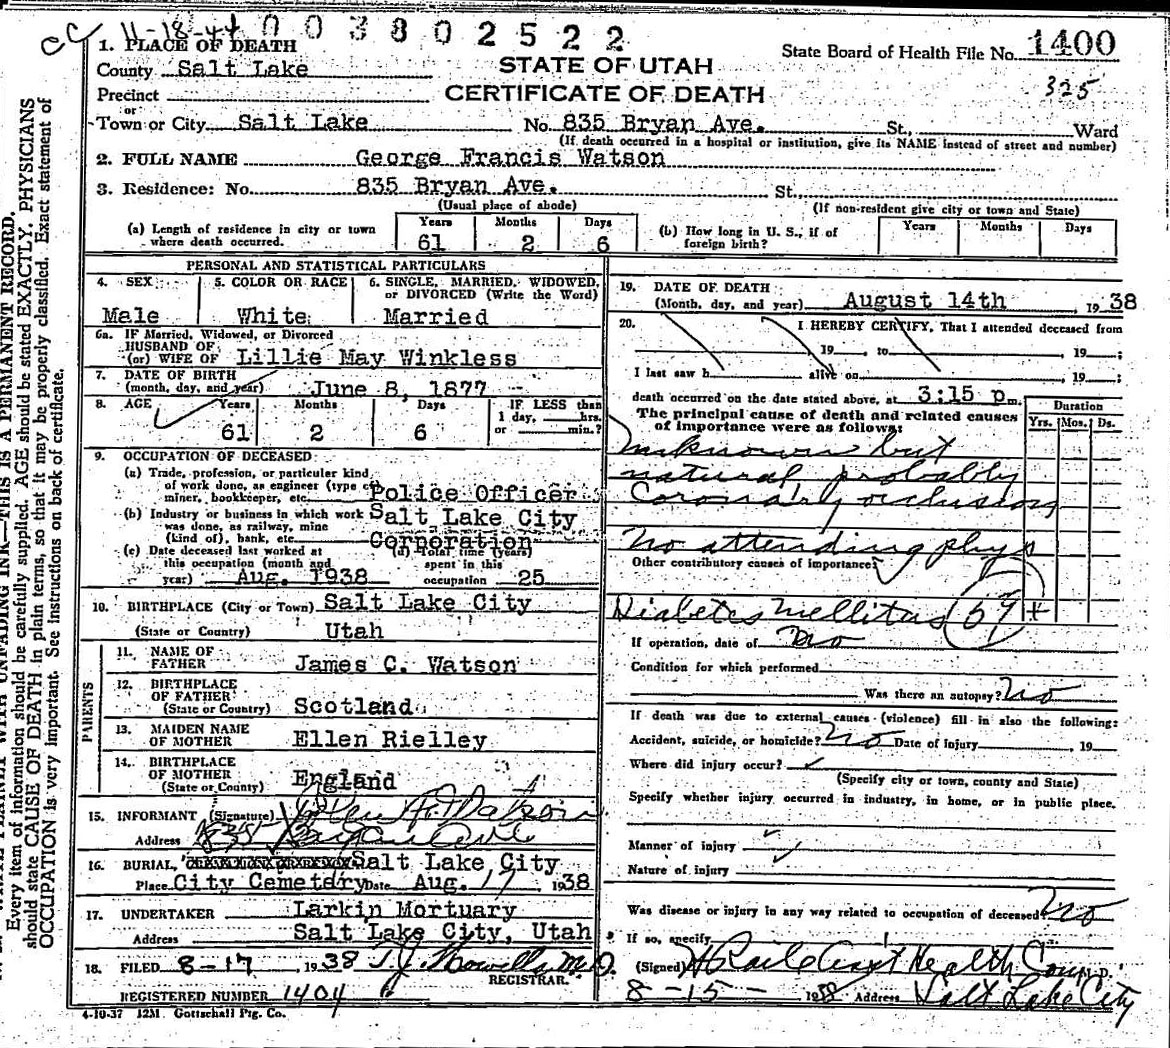 CC 11-18-44 0 0 3 8 0 2 5 2 2
1. PLACE OF DEATH
State Board of Health File No. 1400
County Salt Lake
STATE OF UTAH
325
Precinct
CERTIFICATE OF DEATH
or
Town or City Salt Lake No. 835 Bryan Ave. St., Ward
(If death occurred in a hospital or institution, give its NAME instead of street and number)
2. FULL NAME George Francis Watson
3. Residence: No. 835 Bryan Ave. St.,
(Usual place of abode) (If non-resident give city or town and State)
(a) Length of residence in city or town where death occurred. Years 61 Months 2 Days 6
(b) How long in U. S., if of foreign birth? Years Months Days
PERSONAL AND STATISTICAL PARTICULARS
4. SEX Male
5. COLOR OR RACE White
6. SINGLE, MARRIED, WIDOWED, or DIVORCED (Write the Word) Married
6a. IF Married, Widowed, or Divorced
HUSBAND OF
(or) WIFE OF Lillie May Winkless
7. DATE OF BIRTH
(month, day, and year) June 8, 1877
8. AGE Years 61 Months 2 Days 6 IF LESS than 1 day, hrs. or min.?
9. OCCUPATION OF DECEASED:
(a) Trade, profession, or particular kind
of work done, as engineer (type of
miner, bookkeeper, etc. Police Officer
(b) Industry or business in which work Salt Lake City
was done, as railway, mine
(kind of), bank, etc. Corporation
(c) Date deceased last worked at
this occupation (month and
year) Aug. 1938
(d) Total time (years)
spent in this
occupation 25
10. BIRTHPLACE (City or Town) Salt Lake City
(State or Country) Utah
PARENTS
11. NAME OF
FATHER James C. Watson
12. BIRTHPLACE
OF FATHER
(State or Country) Scotland
13. MAIDEN NAME
OF MOTHER Ellen Rielley
14. BIRTHPLACE
OF MOTHER
(State or County) England
15. INFORMANT (Signature) Watson
Address 835 Bryan Ave
16. BURIAL, Salt Lake City
Place City Cemetery Date Aug. 17 1938
17. UNDERTAKER Larkin Mortuary
Address Salt Lake City, Utah
18. FILED 8-17, 1938 T. J. Howells M.D.
REGISTRAR.
REGISTERED NUMBER 1404
4-10-37 12M Gottschall Ptg. Co.
19. DATE OF DEATH
(Month, day, and year) August 14th 1938
20. I HEREBY CERTIFY, That I attended deceased from
19 , to 19 ;
I last saw h alive on 19 ;
death occurred on the date stated above, at 3:15 p m.
The principal cause of death and related causes
of importance were as follows:
Duration
Yrs. Mos. Ds.
unknown but
natural probably
Coronary occlusion
No attending phys
Other contributory causes of importance:
Diabetes mellitus (59) +
If operation, date of no
Condition for which performed
Was there an autopsy? no
If death was due to external causes (violence) fill in also the following:
Accident, suicide, or homicide? no Date of injury , 19
Where did injury occur?
(Specify city or town, county and State)
Specify whether injury occurred in industry, in home, or in public place.
Manner of injury
Nature of injury
Was disease or injury in any way related to occupation of deceased? no
If so, specify
(Signed) Asst Health Com M.D.
8-15- 1938 Address Salt Lake City
THIS IS A PERMANENT RECORD.
Every item of information should be carefully supplied. AGE should be stated EXACTLY. PHYSICIANS
should state CAUSE OF DEATH in plain terms, so that it may be properly classified. Exact statement of
OCCUPATION is very important. See instructions on back of certificate.